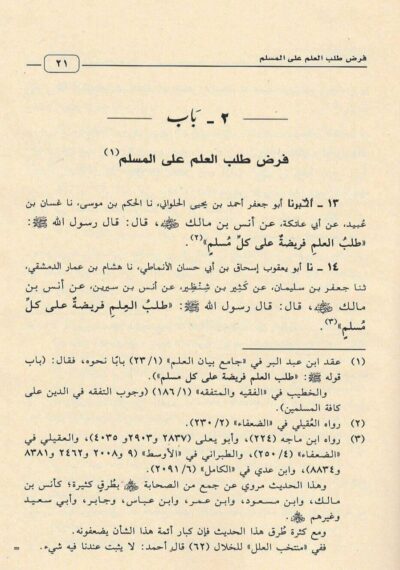 فرض طلب العلم على المسلم
٢١
٢ - بَاب
فرض طلب العلم على المسلم(١)
١٣ - أخبرنا أبو جعفر أحمد بن يحيى الحلواني، نا الحكم بن موسى، نا غسان بن
عُبيد، عن أبي عاتكة، عن أنس بن مالك ﷺ، قال: قال رسول الله ﷺ:
«طلبُ العلمِ فريضةٌ على كلِّ مُسلمٍ»(٢).
١٤ - نا أبو يعقوب إسحاق بن أبي حسان الأنماطي، نا هشام بن عمار الدمشقي،
ثنا جعفر بن سليمان، عن كَثِير بن شِنْظِير، عن أنس بن سيرين، عن أنس بن
مالك ﷺ، قال: قال رسول الله ﷺ: «طلبُ العِلمِ فَريضةٌ على كلِّ
مُسلمٍ»(٣).
(١) عقد ابن عبد البر في «جامع بيان العلم» (٢٣/١) بابًا نحوه، فقال: (باب
قوله ﷺ: «طلب العلم فريضة على كل مسلم»).
والخطيب في «الفقيه والمتفقه» (١٨٦/١) (وجوب التفقه في الدين على
كافة المسلمين).
(٢) رواه العُقيلي في «الضعفاء» (٢٣٠/٢).
(٣) رواه ابن ماجه (٢٢٤)، وأبو يعلى (٢٨٣٧ و٢٩٠٣ و٤٠٣٥)، والعقيلي في
«الضعفاء» (٢٥٠/٤)، والطبراني في «الأوسط» (٩ و٢٠٠٨ و٢٤٦٢ و٨٣٨١
و٨٨٣٤)، وابن عدي في «الكامل» (٢٠٩١/٦).
وهذا الحديث مروي عن جمع من الصحابة ﷺ بطُرقٍ كثيرة؛ كأنس بن
مالك، وابن مسعود، وابن عمر، وابن عباس، وجابر، وأبي سعيد
وغيرهم ﷺ.
ومع كثرة طُرق هذا الحديث فإن كبار أئمة هذا الشأن يضعفونه.
ففي «منتخب العلل» للخلال (٦٢) قال أحمد: لا يثبت عندنا فيه شيء. =